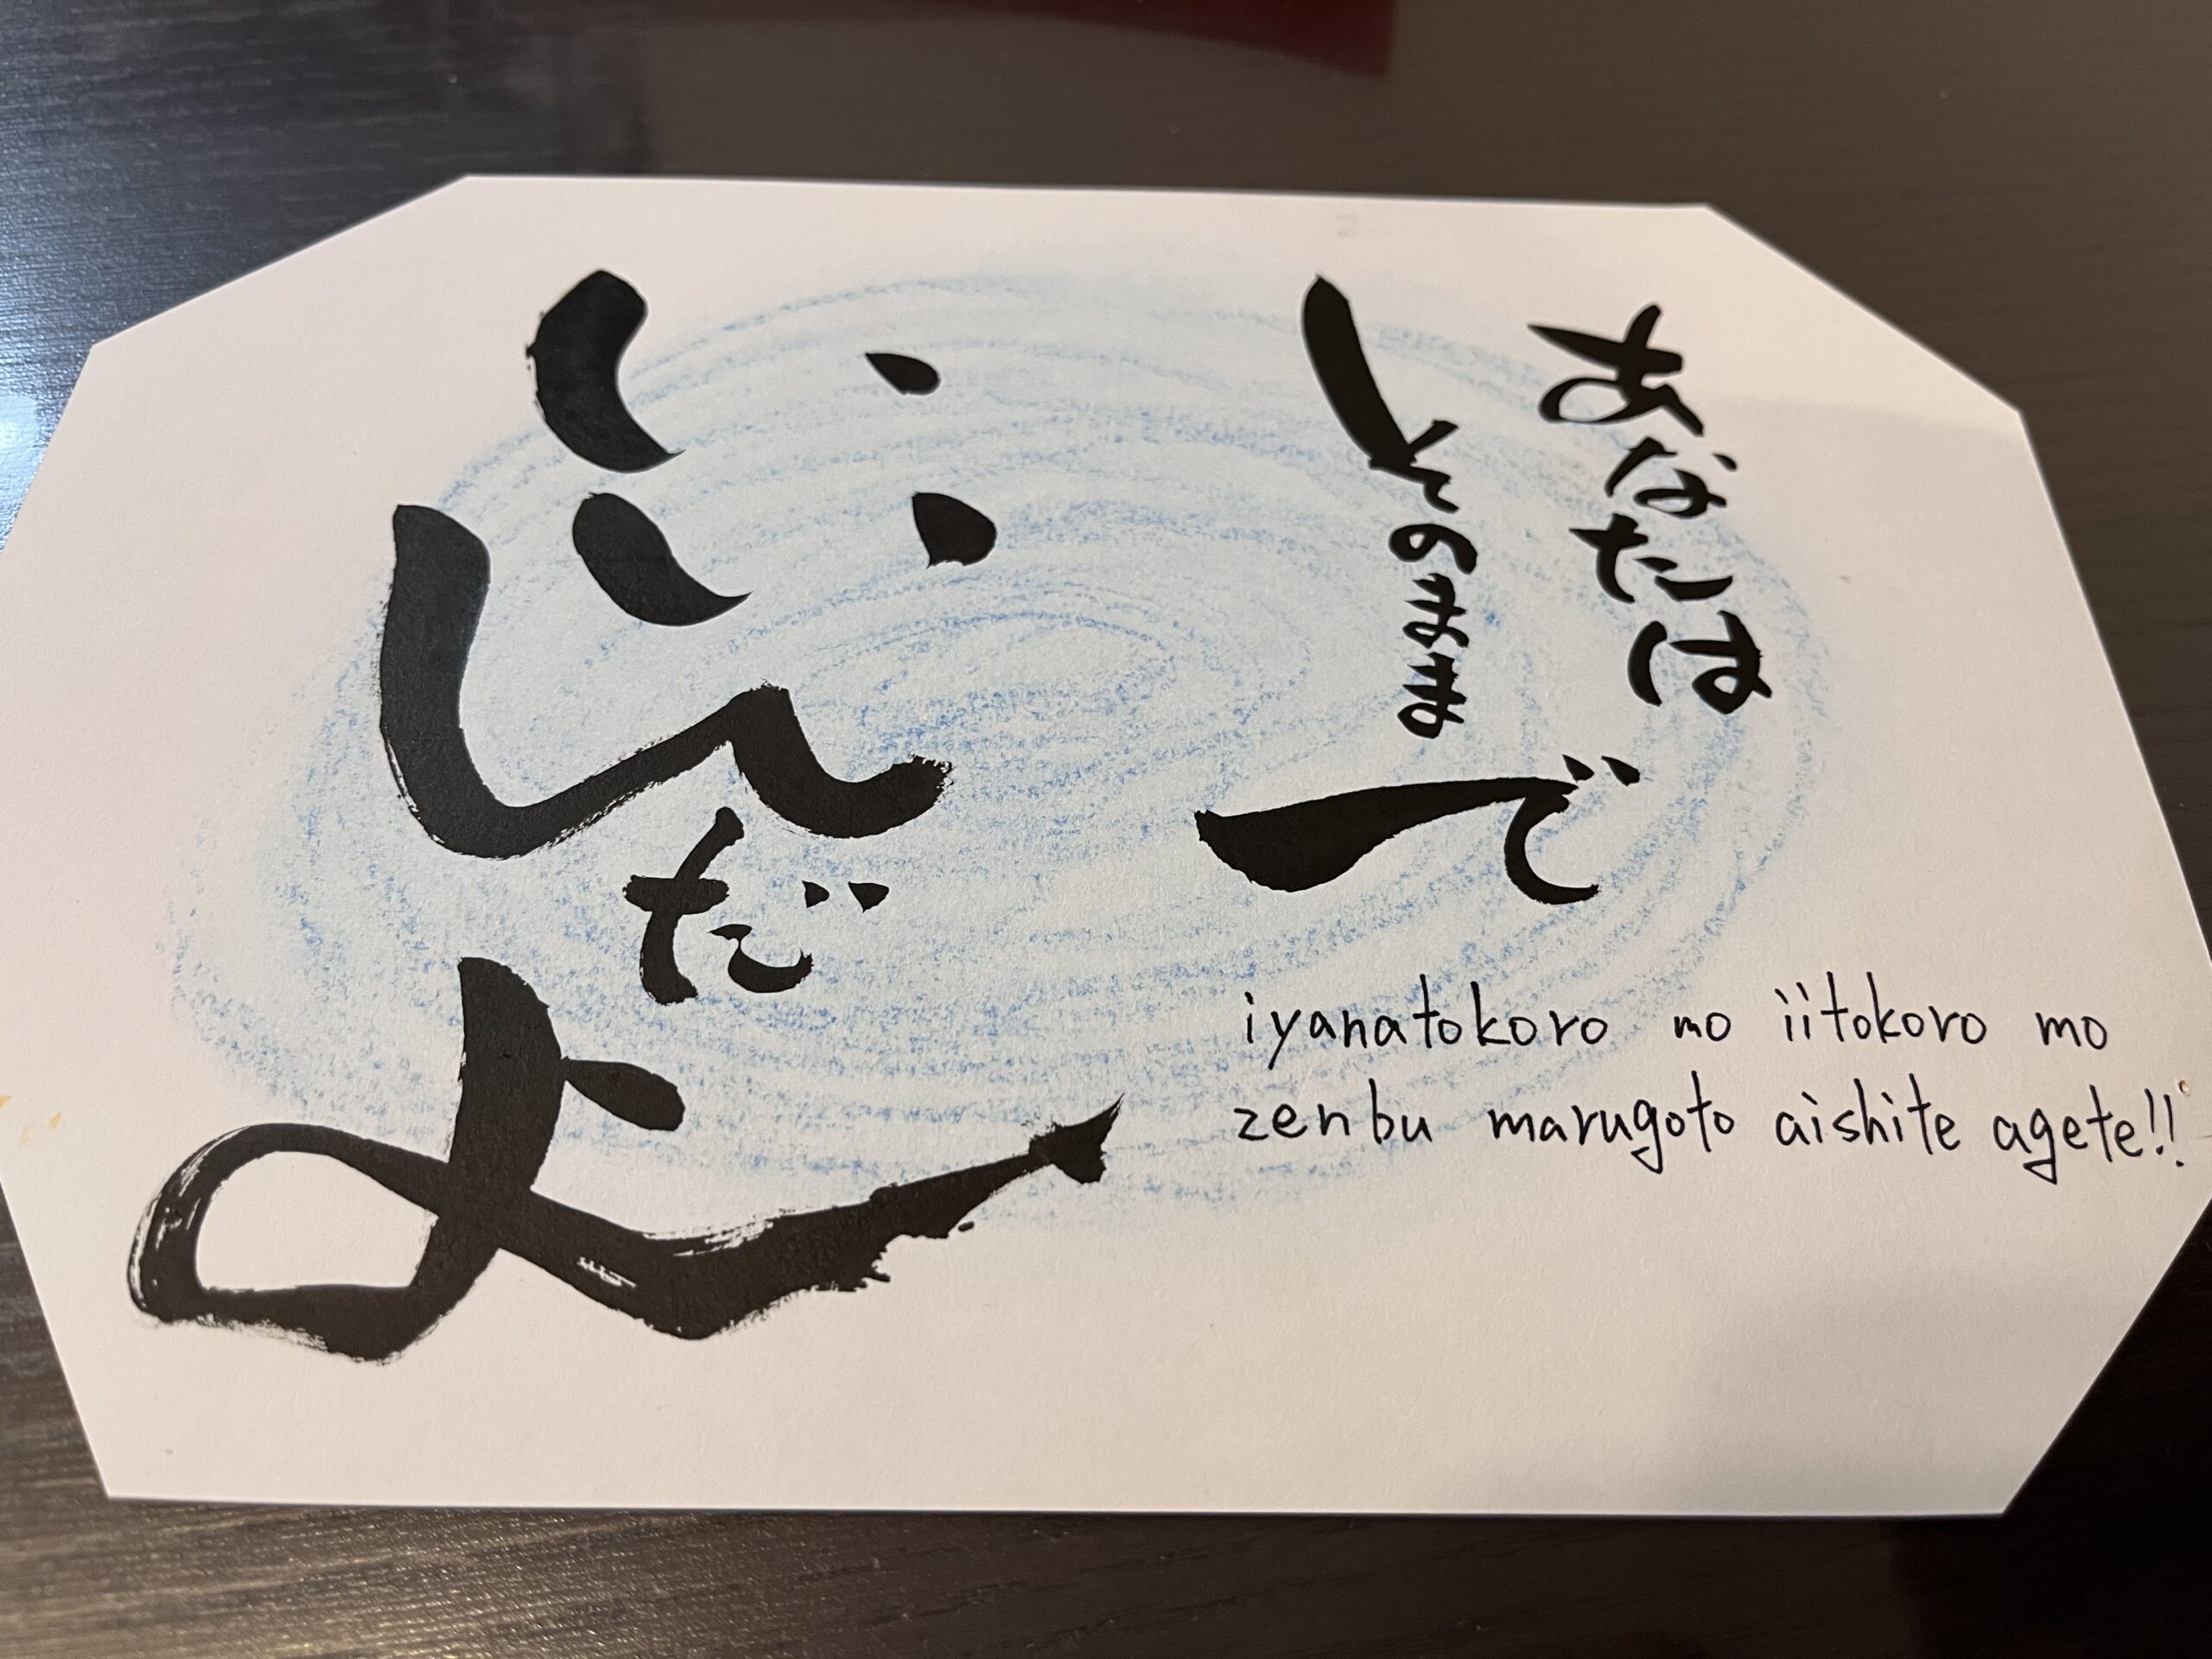 あなたは
そのままで
いいんだよ
iyanatokoro mo iitokoro mo
zenbu marugoto aishite agete!!